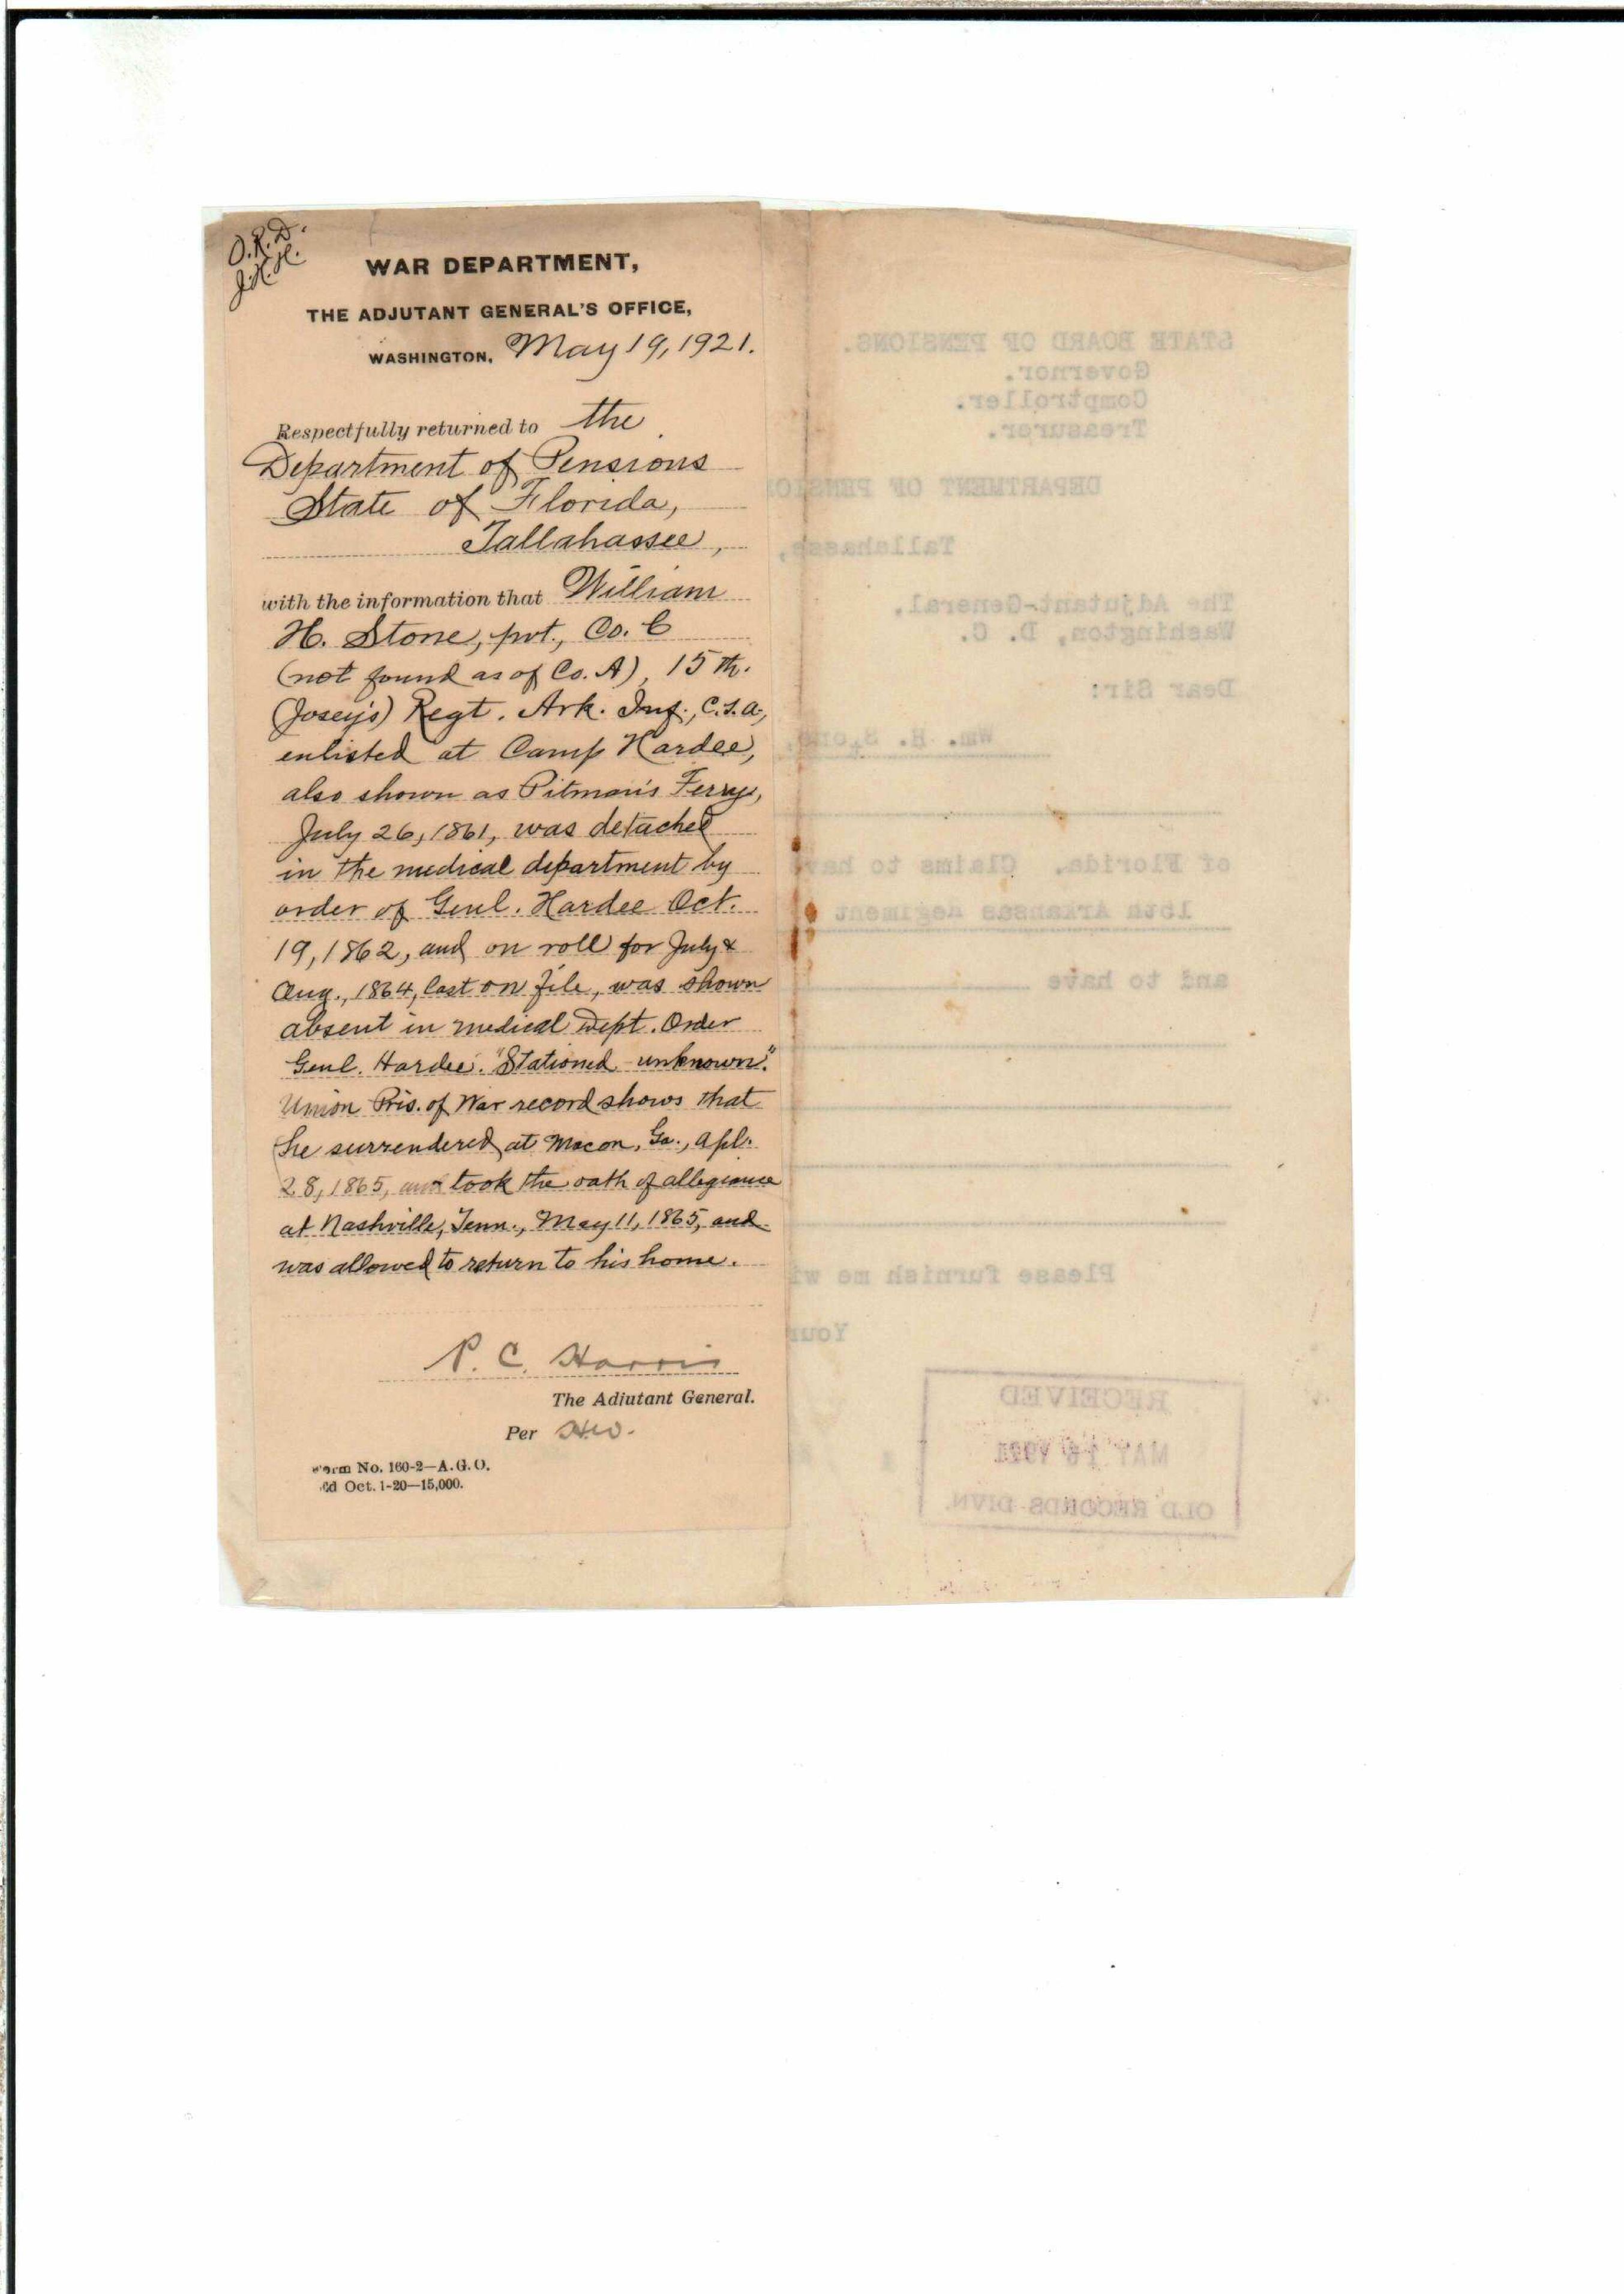 O.R.D.
J.H.H.
WAR DEPARTMENT,
THE ADJUTANT GENERAL'S OFFICE,
WASHINGTON, May 19, 1921.
Respectfully returned to the
Department of Pensions
State of Florida,
Tallahassee,
with the information that William
H. Stone, pvt., Co. C
(not found as of Co. A), 15th.
(Josey's) Regt. Ark. Inf., C.S.A.,
enlisted at Camp Hardee,
also shown as Pitman's Ferry,
July 26, 1861, was detached
in the medical department by
order of Genl. Hardee Oct.
19, 1862, and on roll for July &
Aug., 1864, last on file, was shown
absent in medical Dept. Order
Genl. Hardee. "Stationed unknown."
Union Pris. of War record shows that
he surrendered at Macon, Ga., Apl.
28, 1865, and took the oath of allegiance
at Nashville, Tenn., May 11, 1865, and
was allowed to return to his home.
P. C. Harris
The Adjutant General.
Per
Form No. 160-2—A.G.O.
Ed Oct. 1-20—15,000.
STATE BOARD OF PENSIONS.
Governor.
Comptroller.
Treasurer.
DEPARTMENT OF PENSIO
Tallahassee,
The Adjutant-General,
Washington, D. C.
Dear Sir:
Wm. H. Stone,
of Florida. Claims to hav
15th Arkansas Regiment
and to have
Please furnish me wi
Your
RECEIVED
MAY 16 1921
OLD RECORDS DIVN.